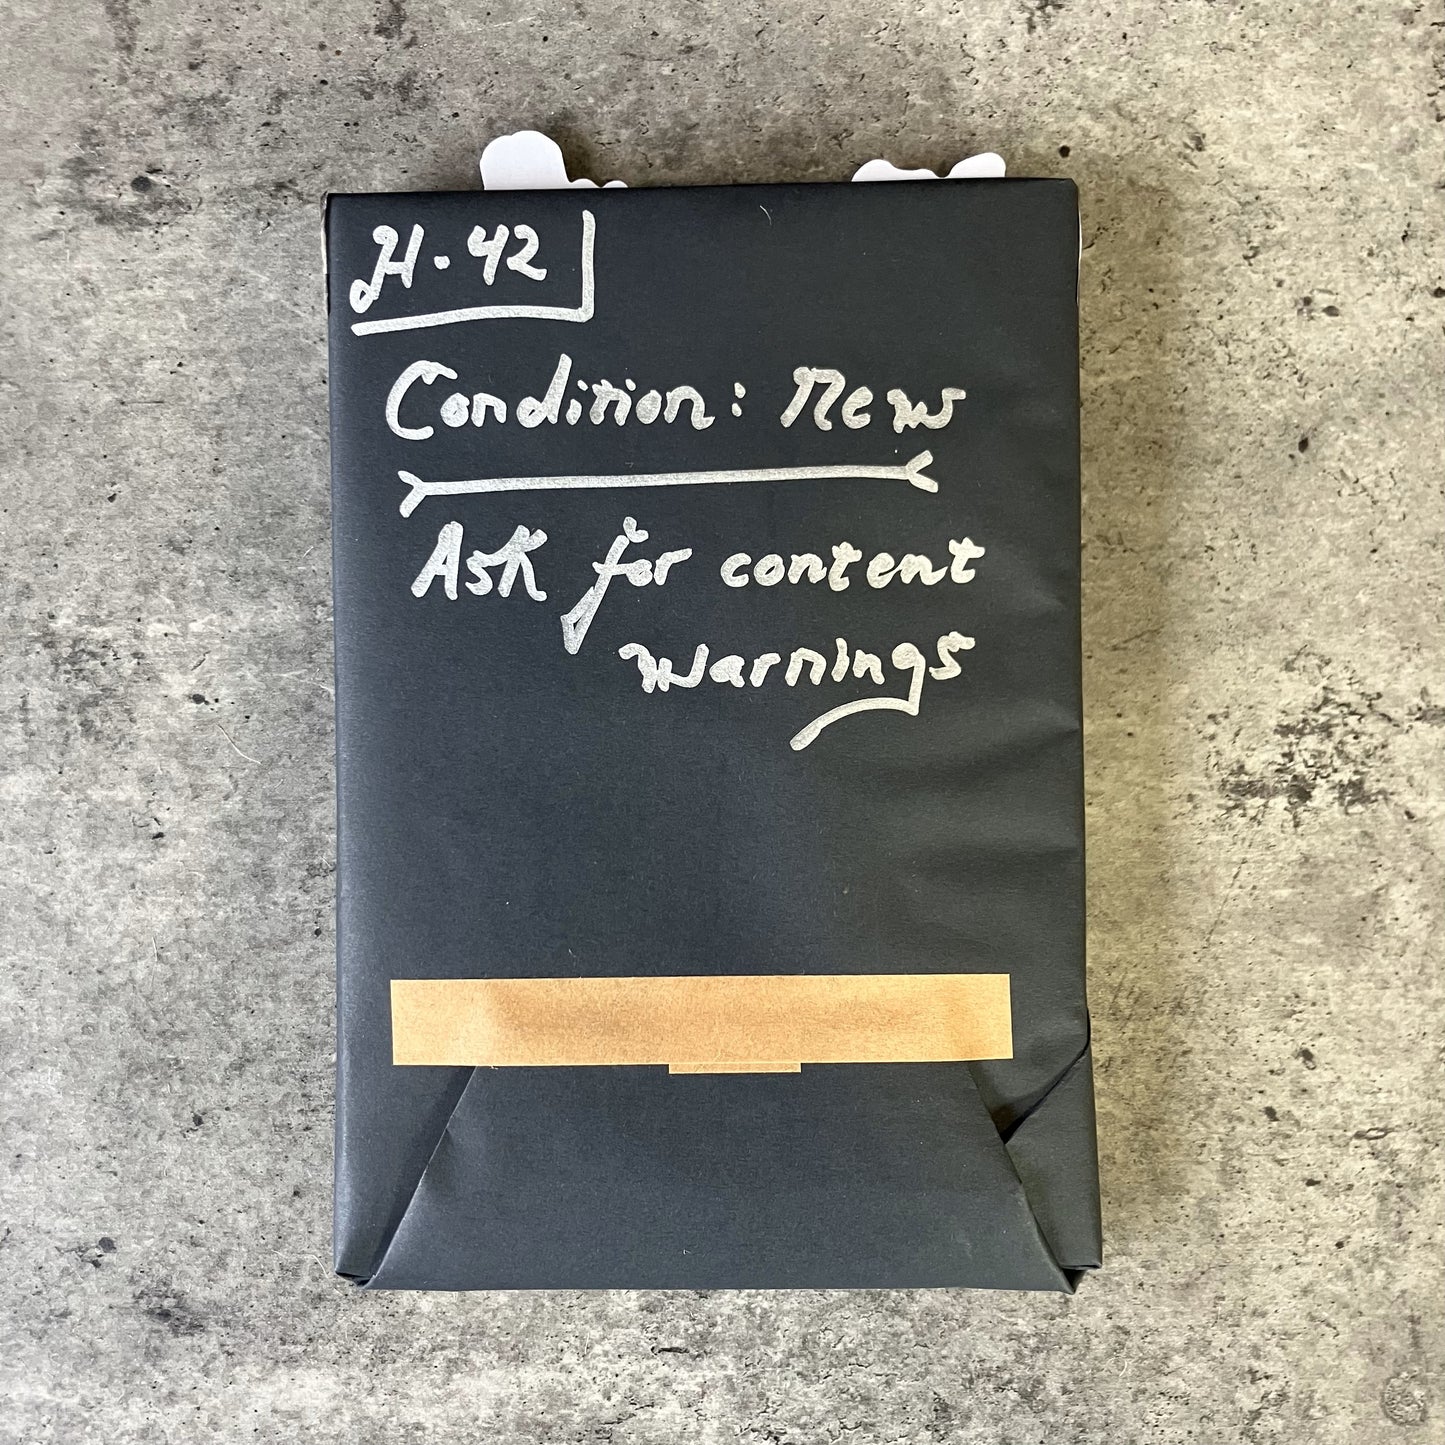 H. 42
Condition: New
Ask for content
warnings